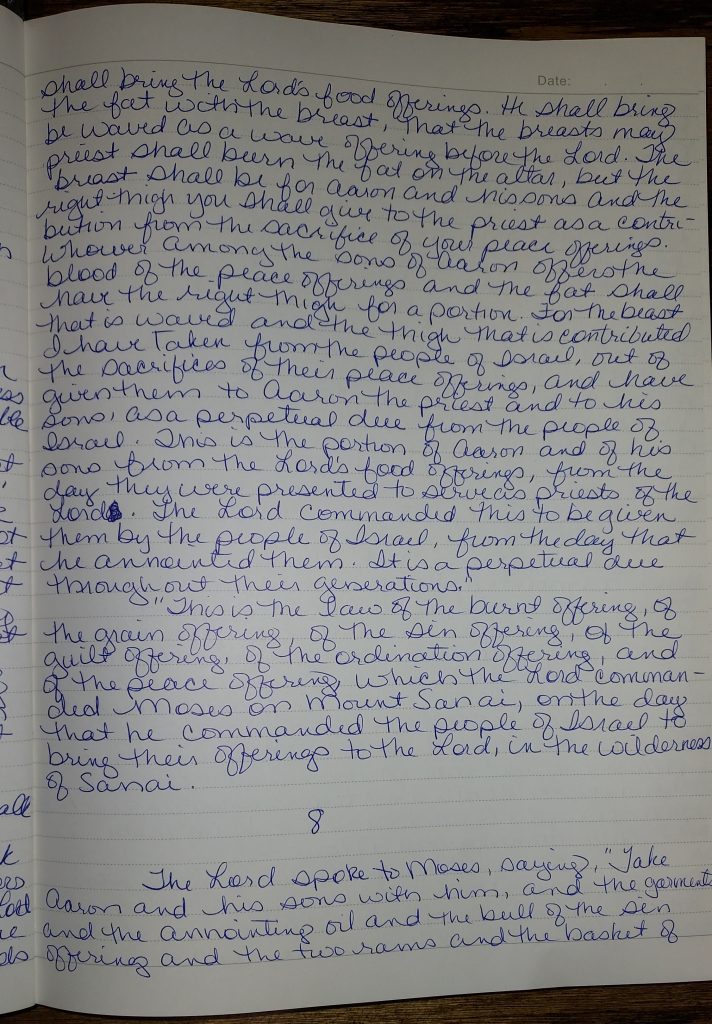 Date:
shall bring the Lord's food offerings. He shall bring
the fat with the breast, that the breasts may
be waved as a wave offering before the Lord. The
priest shall burn the fat on the altar, but the
breast shall be for Aaron and his sons and the
right thigh you shall give to the priest as a contri-
bution from the sacrifice of your peace offerings.
Whoever among the sons of Aaron offers the
blood of the peace offerings and the fat shall
have the right thigh for a portion. For the breast
that is waved and the thigh that is contributed
I have taken from the people of Israel, out of
the sacrifices of their peace offerings, and have
given them to Aaron the priest and to his
sons, as a perpetual due from the people of
Israel. This is the portion of Aaron and of his
sons from the Lord's food offerings, from the
day they were presented to serve as priests of the
Lord. The Lord commanded this to be given
them by the people of Israel, from the day that
he annointed them. It is a perpetual due
throughout their generations."
"This is the law of the burnt offering, of
the grain offering, of the sin offering, of the
guilt offering, of the ordination offering, and
of the peace offering, which the Lord comman-
ded Moses on Mount Sanai, on the day
that he commanded the people of Israel to
bring their offerings to the Lord, in the wilderness
of Sanai.
8
The Lord spoke to Moses, saying, "Take
Aaron and his sons with him, and the garments
and the annointing oil and the bull of the sin
offering and the two rams and the basket of